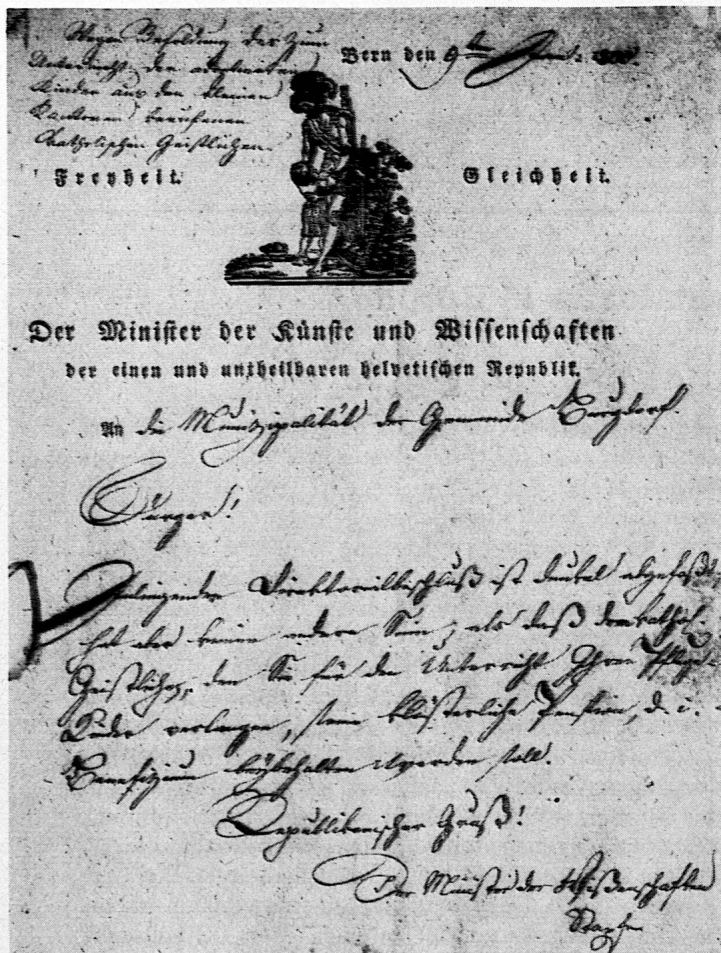 Wegen Besoldung der zum
Unterricht der
Kinder aus den kleinen
Kantonen berufenen
Catholischen Geistlichen.
Bern den 9
Freyheit.
Gleichheit.
Der Minister der Künste und Wissenschaften
der einen und untheilbaren helvetischen Republik.
An die Munizipalität der Gemeinde Burgdorf.
Bürger!
ist dunkel abgefaßt,
hat aber keinen andern Sinn, als daß dem kathol.
Geistlichen, den Sie für den Unterricht Ihrer Pflege-
Kinder verlangen, seine klösterliche Pension, d. i.
Benefizium beybehalten werden soll.
Republikanischer Gruß!
Der Minister der Wißenschaften
Stapfer